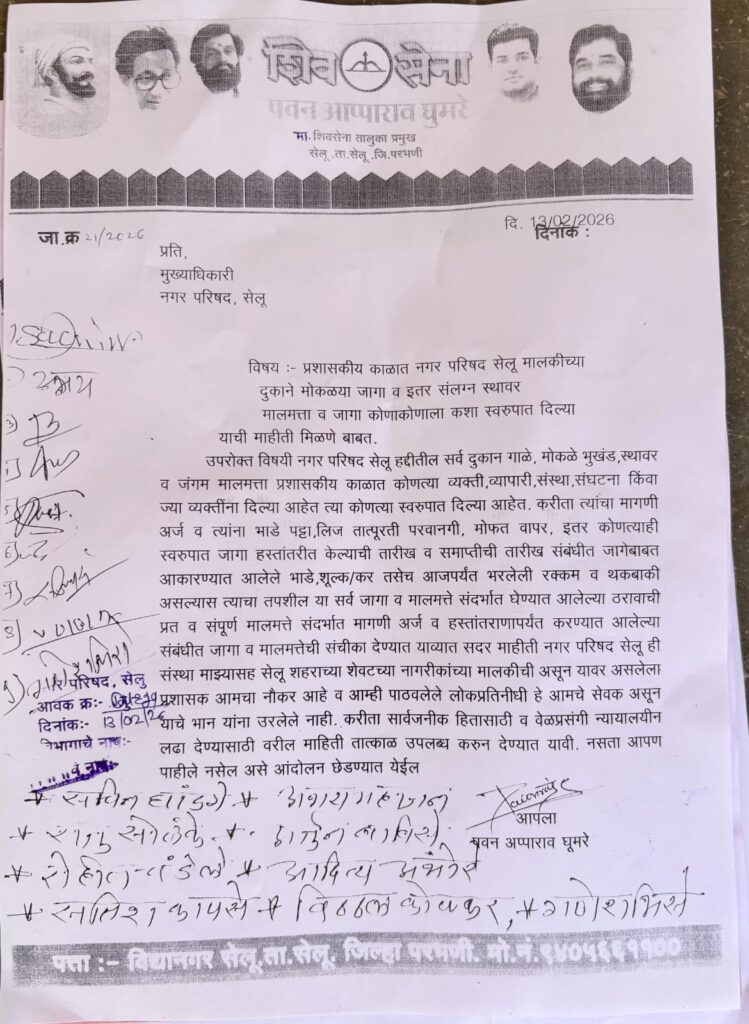 शिव सेना
पवन आप्पाराव घुमरे
मा. शिवसेना तालुका प्रमुख
सेलू .ता.सेलू .जि.परभणी
जा.क्र 21/2026
दि. 13/02/2026
दिनांक :
प्रति,
मुख्याधिकारी
नगर परिषद, सेलू
विषय :- प्रशासकीय काळात नगर परिषद सेलू मालकीच्या
दुकाने मोकळया जागा व इतर संलग्न स्थावर
मालमत्ता व जागा कोणाकोणाला कशा स्वरुपात दिल्या
याची माहीती मिळणे बाबत.
उपरोक्त विषयी नगर परिषद सेलू हद्दीतील सर्व दुकान गाळे, मोकळे भुखंड,स्थावर
व जंगम मालमत्ता प्रशासकीय काळात कोणत्या व्यक्ती,व्यापारी,संस्था,संघटना किंवा
ज्या व्यक्तींना दिल्या आहेत त्या कोणत्या स्वरुपात दिल्या आहेत. करीता त्यांचा मागणी
अर्ज व त्यांना भाडे पट्टा,लिज तात्पूरती परवानगी, मोफत वापर, इतर कोणत्याही
स्वरुपात जागा हस्तांतरीत केल्याची तारीख व समाप्तीची तारीख संबंधीत जागेबाबत
आकारण्यात आलेले भाडे,शूल्क/कर तसेच आजपर्यंत भरलेली रक्कम व थकबाकी
असल्यास त्याचा तपशील या सर्व जागा व मालमत्ते संदर्भात घेण्यात आलेल्या ठरावाची
प्रत व संपूर्ण मालमत्ते संदर्भात मागणी अर्ज व हस्तांतराणापर्यंत करण्यात आलेल्या
संबंधीत जागा व मालमत्तेची संचीका देण्यात याव्यात सदर माहीती नगर परिषद सेलू ही
संस्था माझ्यासह सेलू शहराच्या शेवटच्या नागरीकांच्या मालकीची असून यावर असलेला
प्रशासक आमचा नौकर आहे व आम्ही पाठवलेले लोकप्रतिनीधी हे आमचे सेवक असून
याचे भान यांना उरलेले नाही. करीता सार्वजनीक हितासाठी व वेळप्रसंगी न्यायालयीन
लढा देण्यासाठी वरील माहिती तात्काळ उपलब्ध करुन देण्यात यावी. नसता आपण
पाहीले नसेल असे आंदोलन छेडण्यात येईल
र परिषद, सेलू
आवक क्रः-
दिनांकः- 13/02/26
विभागाचे नावः-
आपला
पवन अप्पाराव घूमरे
* सचिन धांडगे *
*
* रोहीत *  आदित्य
* सतिश कापसे * विठ्ठल कोवकर, * गणेश भिसे
पत्ता :- विद्यानगर सेलू.ता.सेलू, जिल्हा परभणी. मो.नं.९४०५६६११००